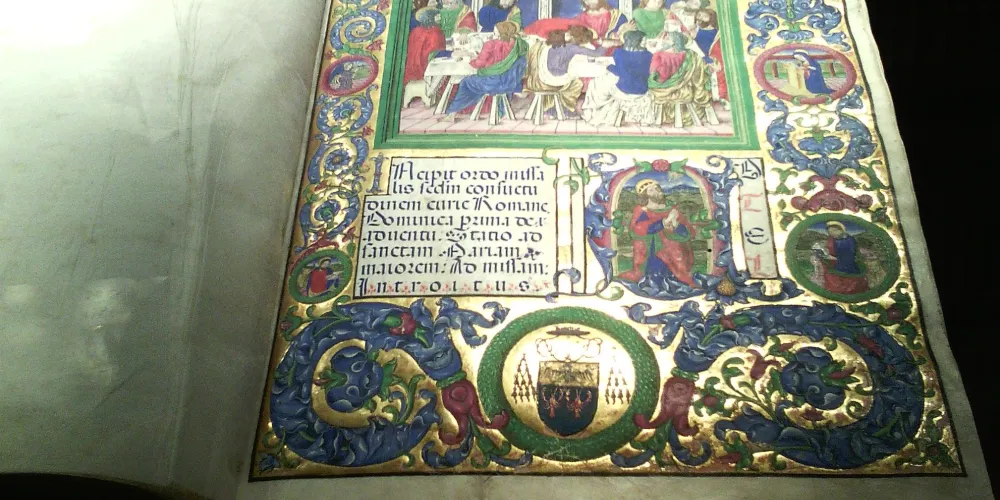 Incipit ordo missa
lis scdm consuetu
dinem curie Romane
Dominica prima de
aduentu. Statio ad
sanctam Mariam
maiorem. Ad missam.
Introitus.
A D
T
E
L